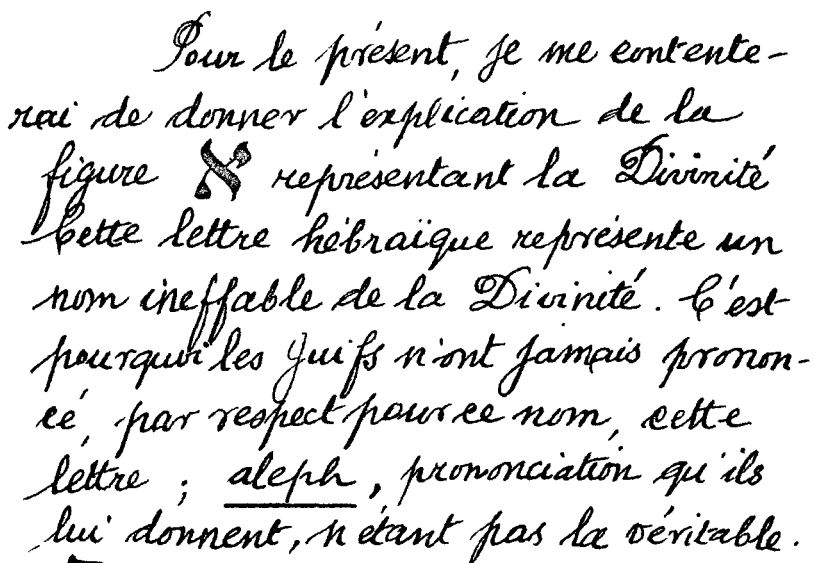 Pour le présent, je me contente-
rai de donner l'explication de la
figure א représentant la Divinité
Cette lettre hébraïque représente un
nom ineffable de la Divinité. C'est
pourquoi les Juifs n'ont jamais pronon-
cé, par respect pour ce nom, cette
lettre ; aleph, prononciation qu'ils
lui donnent, n'étant pas la véritable.